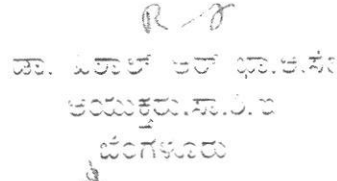 ಡಾ. ವಿಶಾಲ್ ಆರ್ ಭಾ.ಆ.ಸೇ
ಆಯುಕ್ತರು.ಸಾ.ಶಿ.ಇ
ಬೆಂಗಳೂರು